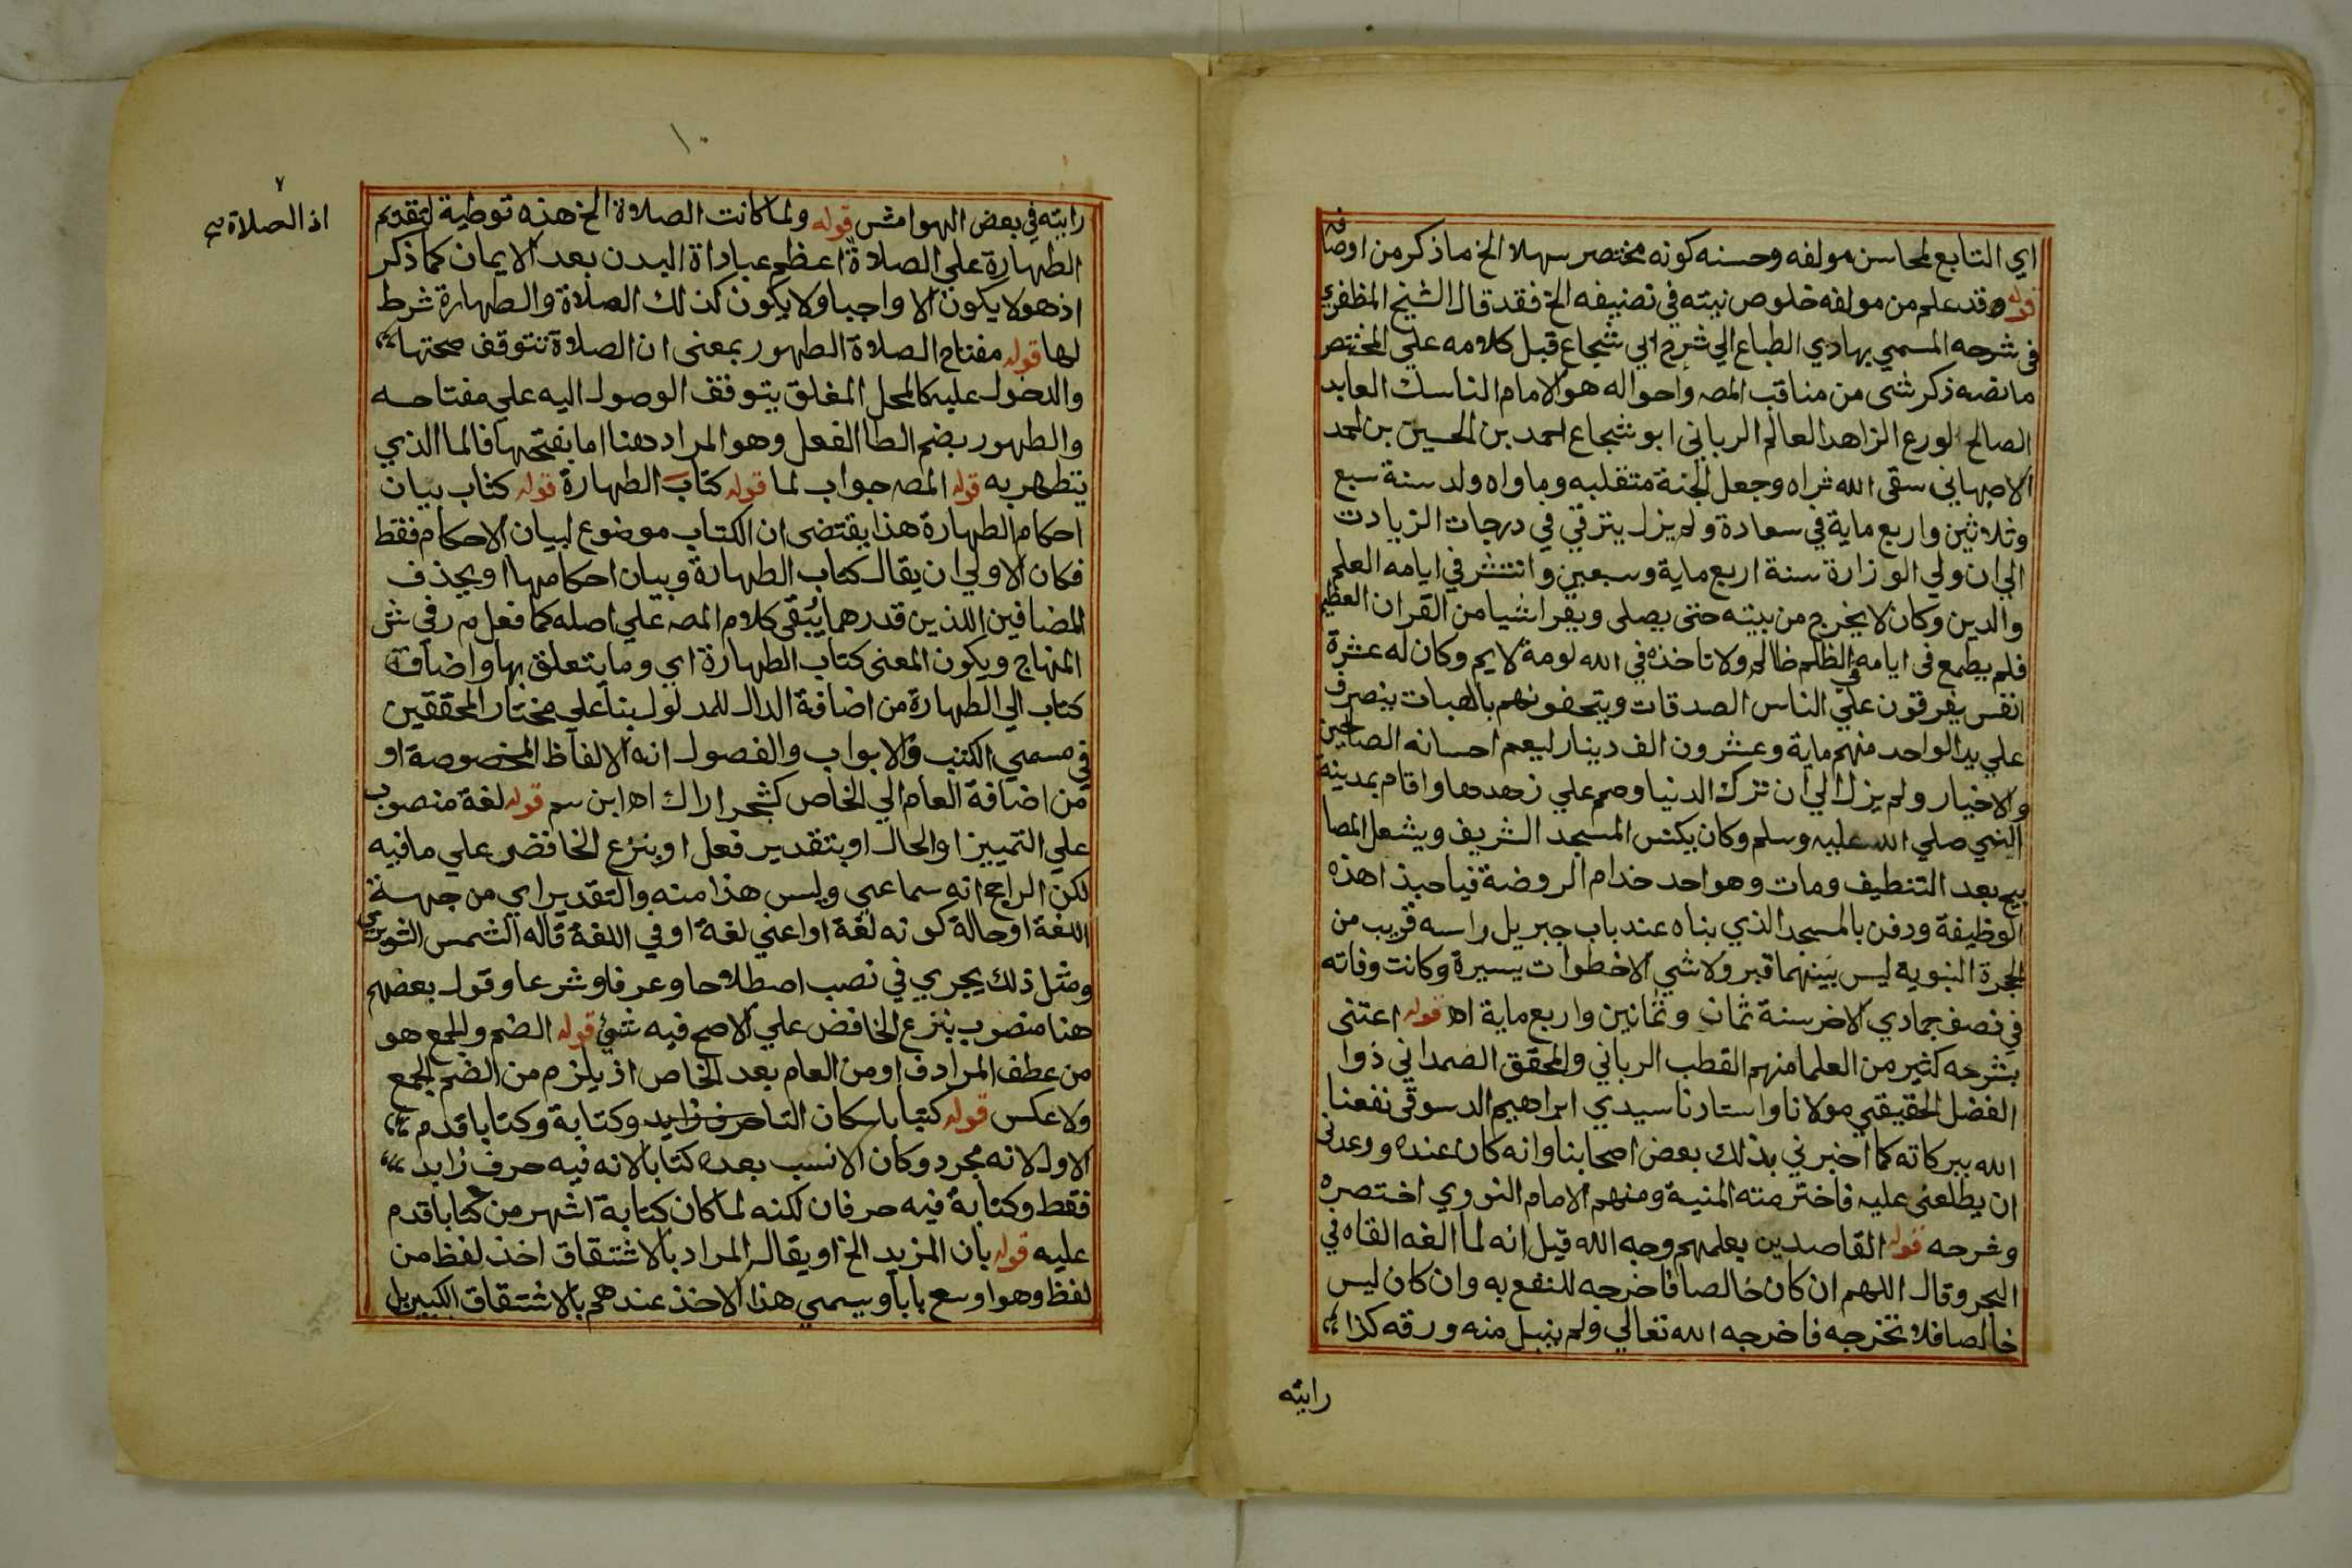 اي التابع لمحاسن مولفه وحسنه كونه مختصر سهلا الخ ما ذكر من اوصافه
قوله وقد علم من مولفه خلوص نيته في تصنيفه الخ فقد قال الشيخ المظفري
في شرحه المسمي بهادي الطباع الي شرح ابي شجاع قبل كلامه علي المختصر
ما نصه ذكر شي من مناقب المصه واحواله هو الامام الناسك العابد
الصالح الورع الزاهد العالم الرباني ابو شجاع احمد بن الحسين بن احمد
الاصبهاني سقي الله ثراه وجعل الجنة متقلبه وماواه ولد سنة سبع
وثلاثين واربع ماية في سعادة ولم يزل يترقي في درجات الزيادت
الي ان ولي الوزارة سنة اربع ماية وسبعين وانتشر في ايامه العلم
والدين وكان لا يخرج من بيته حتي يصلي ويقرا شيا من القران العظيم
فلم يطمع في ايامه في الظلم ظالم ولا تاخذه في الله لومة لايم وكان له عشرة
انفس يفرقون علي الناس الصدقات ويتحفونهم بالهبات يتصرف
علي يد الواحد منهم ماية وعشرون الف دينار ليعم احسانه الصالحين
والاخيار ولم يزل الي ان ترك الدنيا وصم علي زهدها واقام بمدينة
النبي صلي الله عليه وسلم وكان يكنس المسجد الشريف ويشعل المصا
بيح بعد التنظيف ومات وهو احد خدام الروضة فياحبذا هذه
الوظيفة ودفن بالمسجد الذي بناه عند باب جبريل راسه قريب من
الحجرة النبويه ليس بينهما قبر ولا شي الا خطوات يسيرة وكانت وفاته
في نصف جمادي الاخر سنة ثمان وثمانين واربع ماية اه قوله اعتني
بشرحه كثير من العلما منهم القطب الرباني والمحقق الصمداني ذوا
الفضل الحقيقي مولانا واستاذنا سيدي ابراهيم الدسوقي نفعنا
الله ببركاته كما اخبرني بذلك بعض اصحابنا وانه كان عنده ووعدني
ان يطلعني عليه فاخترمته المنية ومنهم الامام النووي اختصره
وشرحه قوله القاصدين بعلمهم وجه الله قيل انه لما الفه القاه في
البحر وقال اللهم ان كان خالصا فاخرجه للنفع به وان كان ليس
خالصا فلا تخرجه فاخرجه الله تعالي ولم ينبل منه ورقه كذا
رايته
١٠
رايته في بعض الهوامش قوله ولما كانت الصلاة الخ هذه توطية لتقدم
الطهارة علي الصلاة اعظم عباداة البدن بعد الايمان كما ذكر
اذ الصلاة صح
اذ هو لا يكون الا واجبا ولا يكون كذلك الصلاة والطهارة شرط
لها قوله مفتاح الصلاة الطهور بمعني ان الصلاة تتوقف صحتها
والدخول عليه كالمحل المغلق يتوقف الوصول اليه علي مفتاحه
والطهور بضم الطا الفعل وهو المراد هنا اما بفتحها فالما الذي
يتطهر به قوله المصه جواب لما قوله كتاب الطهارة قوله كتاب بيان
احكام الطهارة هذا يقتضي ان الكتاب موضوع لبيان الاحكام فقط
فكان الاولي ان يقال كتاب الطهارة وبيان احكامها او يحذف
المضافين اللذين قدرهما يبقي كلام المصه علي اصله كما فعل م ر في ش
المنهاج ويكون المعني كتاب الطهارة اي وما يتعلق بها واضافة
كتاب الي الطهارة من اضافة الدال للمدلول بنا علي مختار المحققين
في مسمي الكتب والابواب والفصول انه الالفاظ المخصوصة او
من اضافة العام الي الخاص كشجر اراك اه ابن سم قوله لغة منصوب
علي التمييز او الحال او بتقدير فعل او بنزع الخافض علي ما فيه
لكن الراجح انه سماعي وليس هذا منه والتقدير اي من جهة
اللغة او حالة كونه لغة او اعني لغة او في اللغة قاله الشمس الشوبري
ومثل ذلك يجري في نصب اصطلاحا وعرفا وشرعا وقول بعضهم
هنا منصوب بنزع الخافض علي الاصح فيه شي قوله الضم والجمع هو
من عطف المرادف او من العام بعد الخاص اذ يلزم من الضم الجمع
ولا عكس قوله كتبا باسكان التا حرف زايد وكتابة وكتابا قدم
الاول لانه مجرد وكان الانسب بعده كتابا لانه فيه حرف زايد
فقط وكتابة فيه حرفان لكنه لما كان كتابة اشهر من كتابا قدم
عليه قوله بان المزيد الخ او يقال المراد بالاشتقاق اخذ لفظ من
لفظ وهو اوسع بابا ويسمي هذا الاخذ عندهم بالاشتقاق الكبير بل